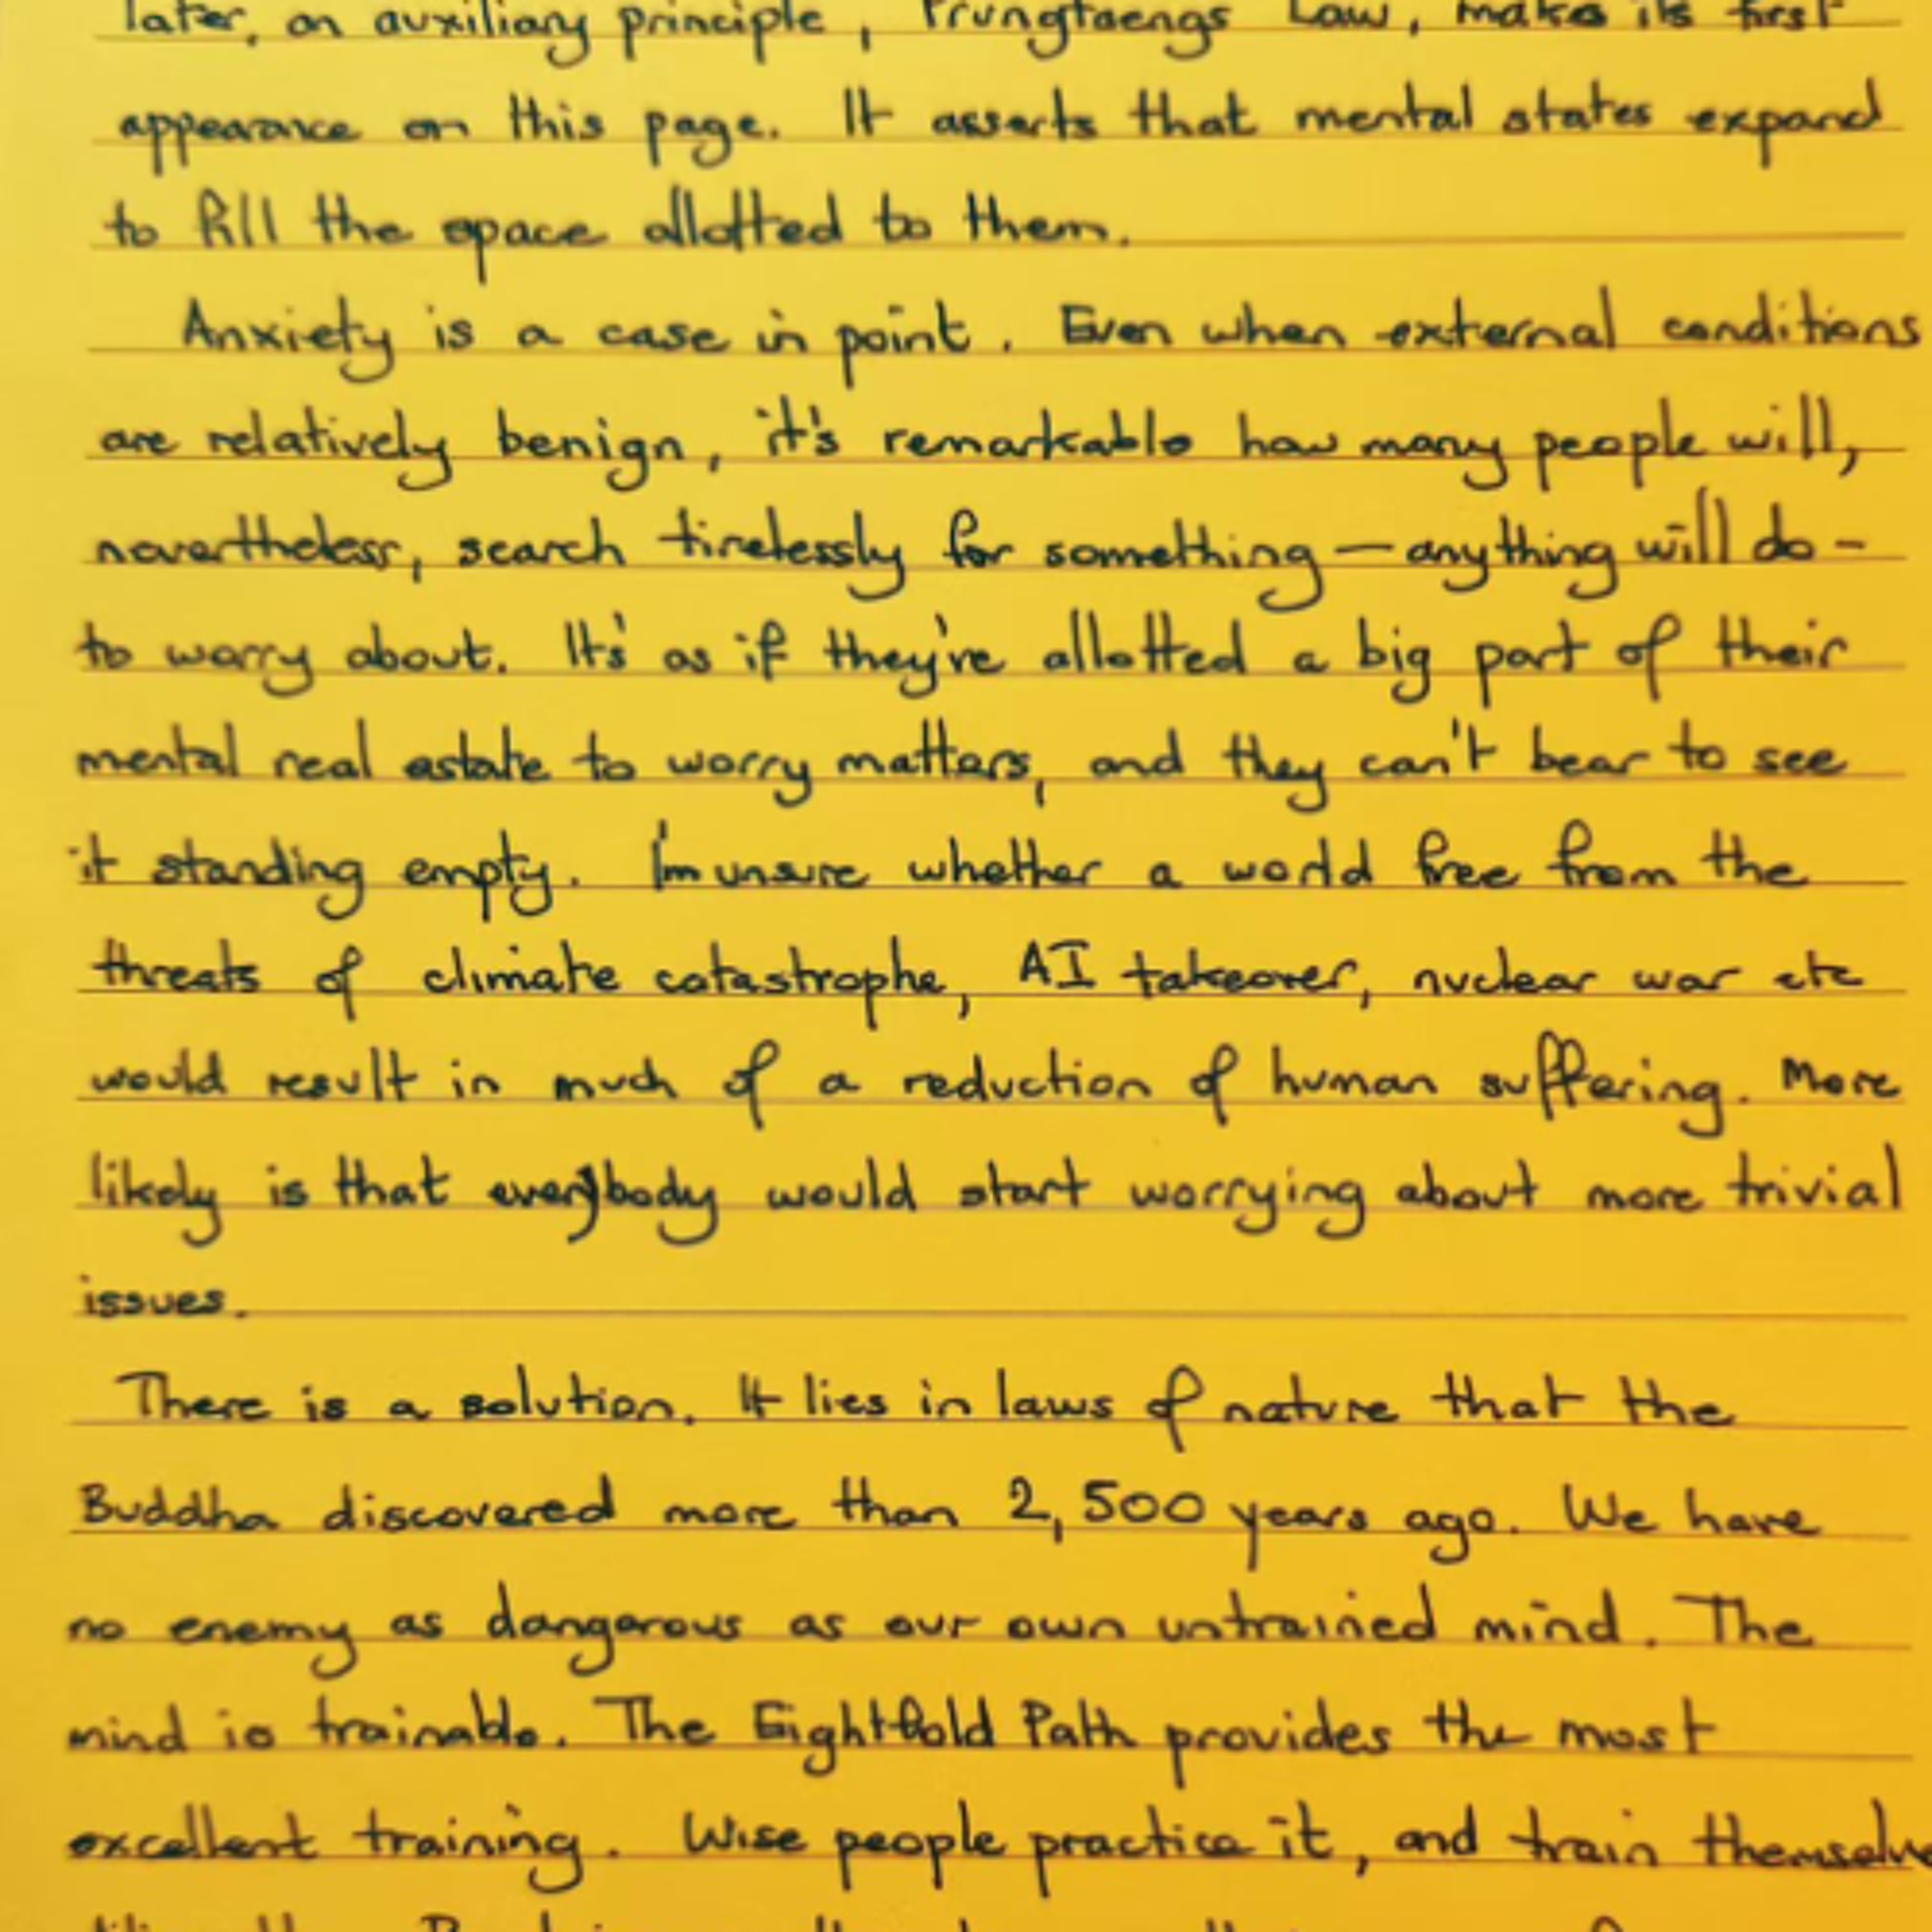 later, an auxiliary principle, Prungtaengs Law, makes its first
appearance on this page. It asserts that mental states expand
to fill the space allotted to them.
Anxiety is a case in point. Even when external conditions
are relatively benign, it's remarkable how many people will,
nevertheless, search tirelessly for something — anything will do -
to worry about. It's as if they've allotted a big part of their
mental real estate to worry matters, and they can't bear to see
it standing empty. I'm unsure whether a world free from the
threats of climate catastrophe, AI takeover, nuclear war etc
would result in much of a reduction of human suffering. More
likely is that everybody would start worrying about more trivial
issues.
There is a solution. It lies in laws of nature that the
Buddha discovered more than 2,500 years ago. We have
no enemy as dangerous as our own untrained mind. The
mind is trainable. The Eightfold Path provides the most
excellent training. Wise people practice it, and train themselve